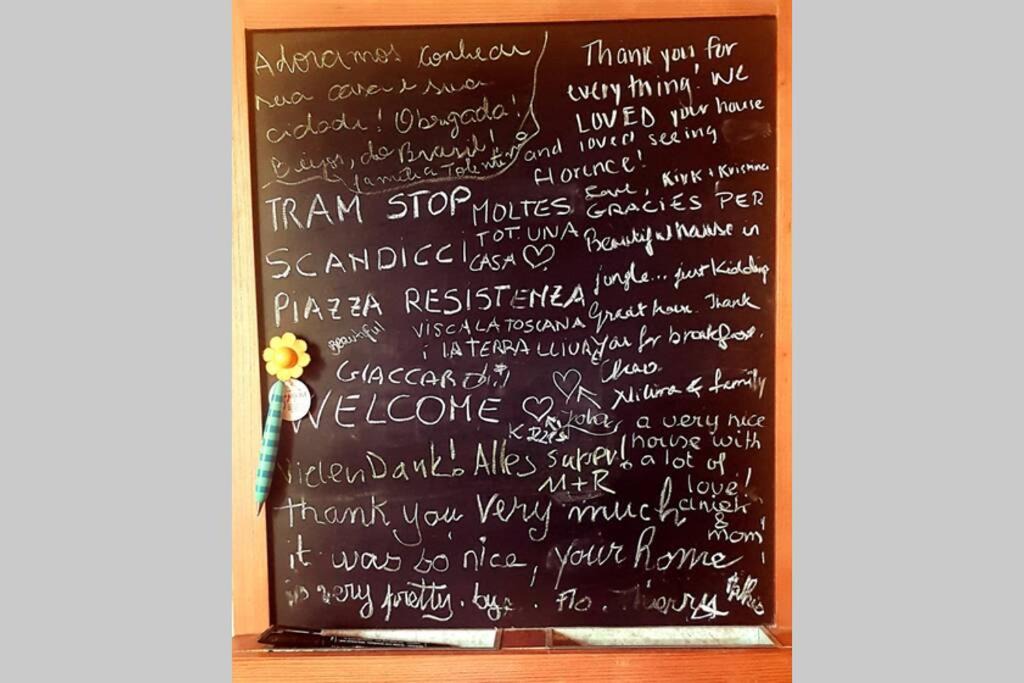 Adoramos conhecer
sua casa e sua
cidade! Obrigada!
Beijos, do Brasil!
família
Thank you for
everything! We
LOVED your house
and loved seeing
florence!
Love, Kirk + Kristina
TRAM STOP
SCANDICCI
PIAZZA RESISTENZA
MOLTES GRACIES PER
TOT. UNA
CASA ♡
VISCA LA TOSCANA
i LA TERRA LLIURE
Beautiful house in
jungle... just kidding
Great house. Thank
you for breakfast.
Ciao.
& family
beautiful
GIACCARDI!!
WELCOME ♡
♡
a very nice
house with
a lot of
love!
&
mom!
Vielen Dank! Alles super!
M+R
thank you very much
it was so nice, your home
is very pretty. bye. Flo. Thierry